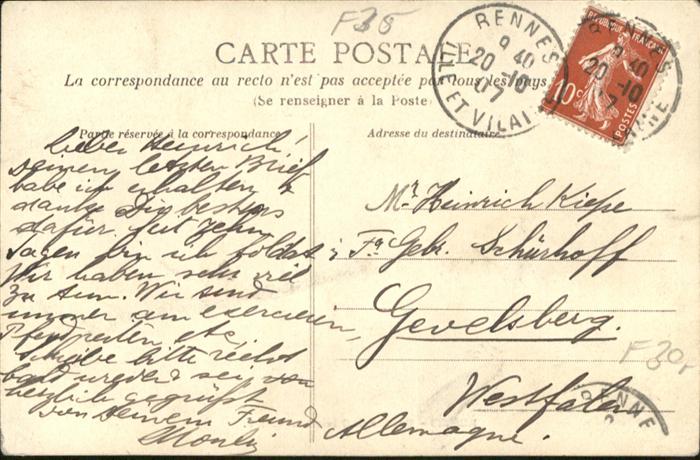 F 35
CARTE POSTALE
La correspondance au recto n'est pas acceptée par tous les pays
(Se renseigner à la Poste)
RENNES
9 40
20 -10
07
ILLE ET VILAINE
REPUBLIQUE FRANÇAISE
10c
POSTES
RENNES
9 40
20 -10
7
VILAINE
Partie réservée à la correspondance
Adresse du destinataire
Lieber Heinrich!
Deinen letzten Brief
habe ich erhalten &
danke Dir bestens
dafür. Seit zehn
Tagen bin ich Soldat
Wir haben sehr viel
zu tun. Wir sind
immer am exercieren,
Pferdreiten, etc.
Schreibe bitte recht
bald wieder & sei von
herzlich gegrüßt
von Deinem Freund
Mr. Heinrich Kiepe
Fa Gebr. Schürhoff
Gevelsberg.
F 30r
Westfalen
Allemagne.
RENNE